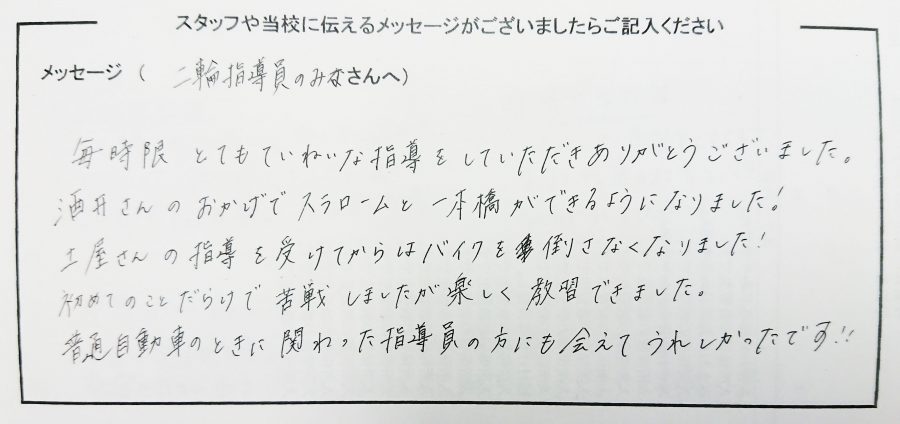 スタッフや当校に伝えるメッセージがございましたらご記入ください
メッセージ ( 二輪指導員のみなさんへ)
毎時限 とてもていねいな指導をしていただきありがとうございました。
酒井さんのおかげでスラロームと一本橋ができるようになりました!
土屋さんの指導を受けてからはバイクを倒さなくなりました!
初めてのことだらけで苦戦しましたが楽しく教習できました。
普通自動車のときに関わった指導員の方にも会えてうれしかったです!!